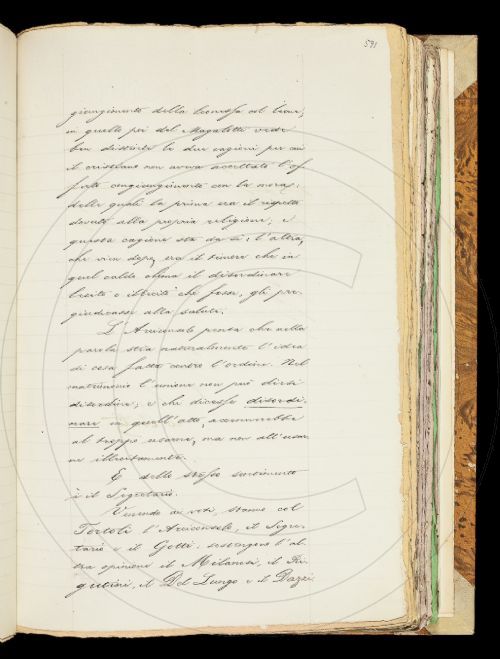 591
giungimento della            col    ,
in quelle poi del Magalotti vide
ben distinte le due cagioni per cui
il cristiano non aveva accettato l'of-
ferto congiungimento con la mora;
delle quali la prima era il rispetto
dovuto alla propria religione; e
questa cagione sta da sè; l'altra,
che vien dopo, era il timore che in
quel caldo clima il disordinare
lecito o illecito che fosse, gli pre-
giudicasse alla salute.
L'Arciconsolo pensa che nella
parola stia naturalmente l'idea
di cosa fatta contro l'ordine. Nel
matrimonio l'unione non può dirsi
disordine; e chi dicesse disordi-
nare in quell'atto, accennerebbe
al troppo usarne, ma non all'usar-
ne illecitamente.
E dello stesso sentimento
è il Segretario.
Venendo ai voti, stanno col
Tortoli l'Arciconsolo, il Segre-
tario e il Gotti: sostengono l'al-
tra opinione il Milanesi, il Ri-
gutini, il Del Lungo e il Dazzi.